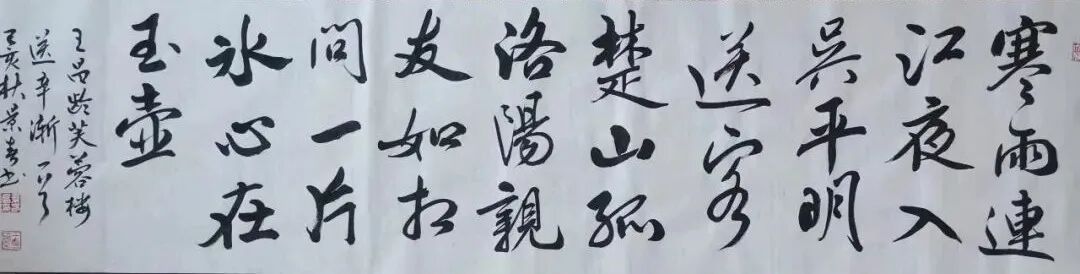 寒雨連
江夜入
吳平明
送客
楚山孤
洛陽親
友如相
問一片
冰心在
玉壺
王昌齡芙蓉樓
送辛漸一首
己亥秋景春书